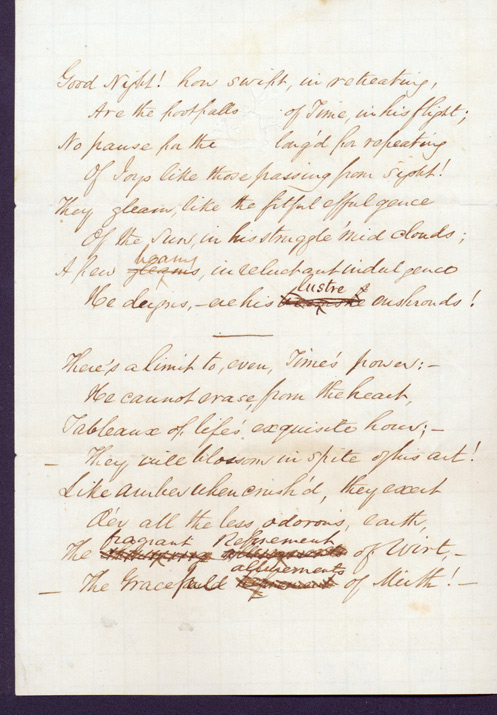 Good Night! how swift, in retreating,
Are the footfalls of Time, in his flight;
No pause for the long'd for repeating
Of Joys like those passing from sight!
They gleam, like the fitful effulgence
Of the Sun, in his struggle 'mid clouds;
A few beams, in reluctant indulgence
He deigns, – ere his lustre he enshrouds!
There's a limit to, even, Time's power: –
He cannot erase, from the heart,
Tableaux of life's exquisite hour; –
– They will blossom in spite of his art!
Like amber when crush'd, they exert
O'er all the less odorous, earth,
The fragrant Refinement of Wirt, –
– The Gracefull allurements of Mirth! –